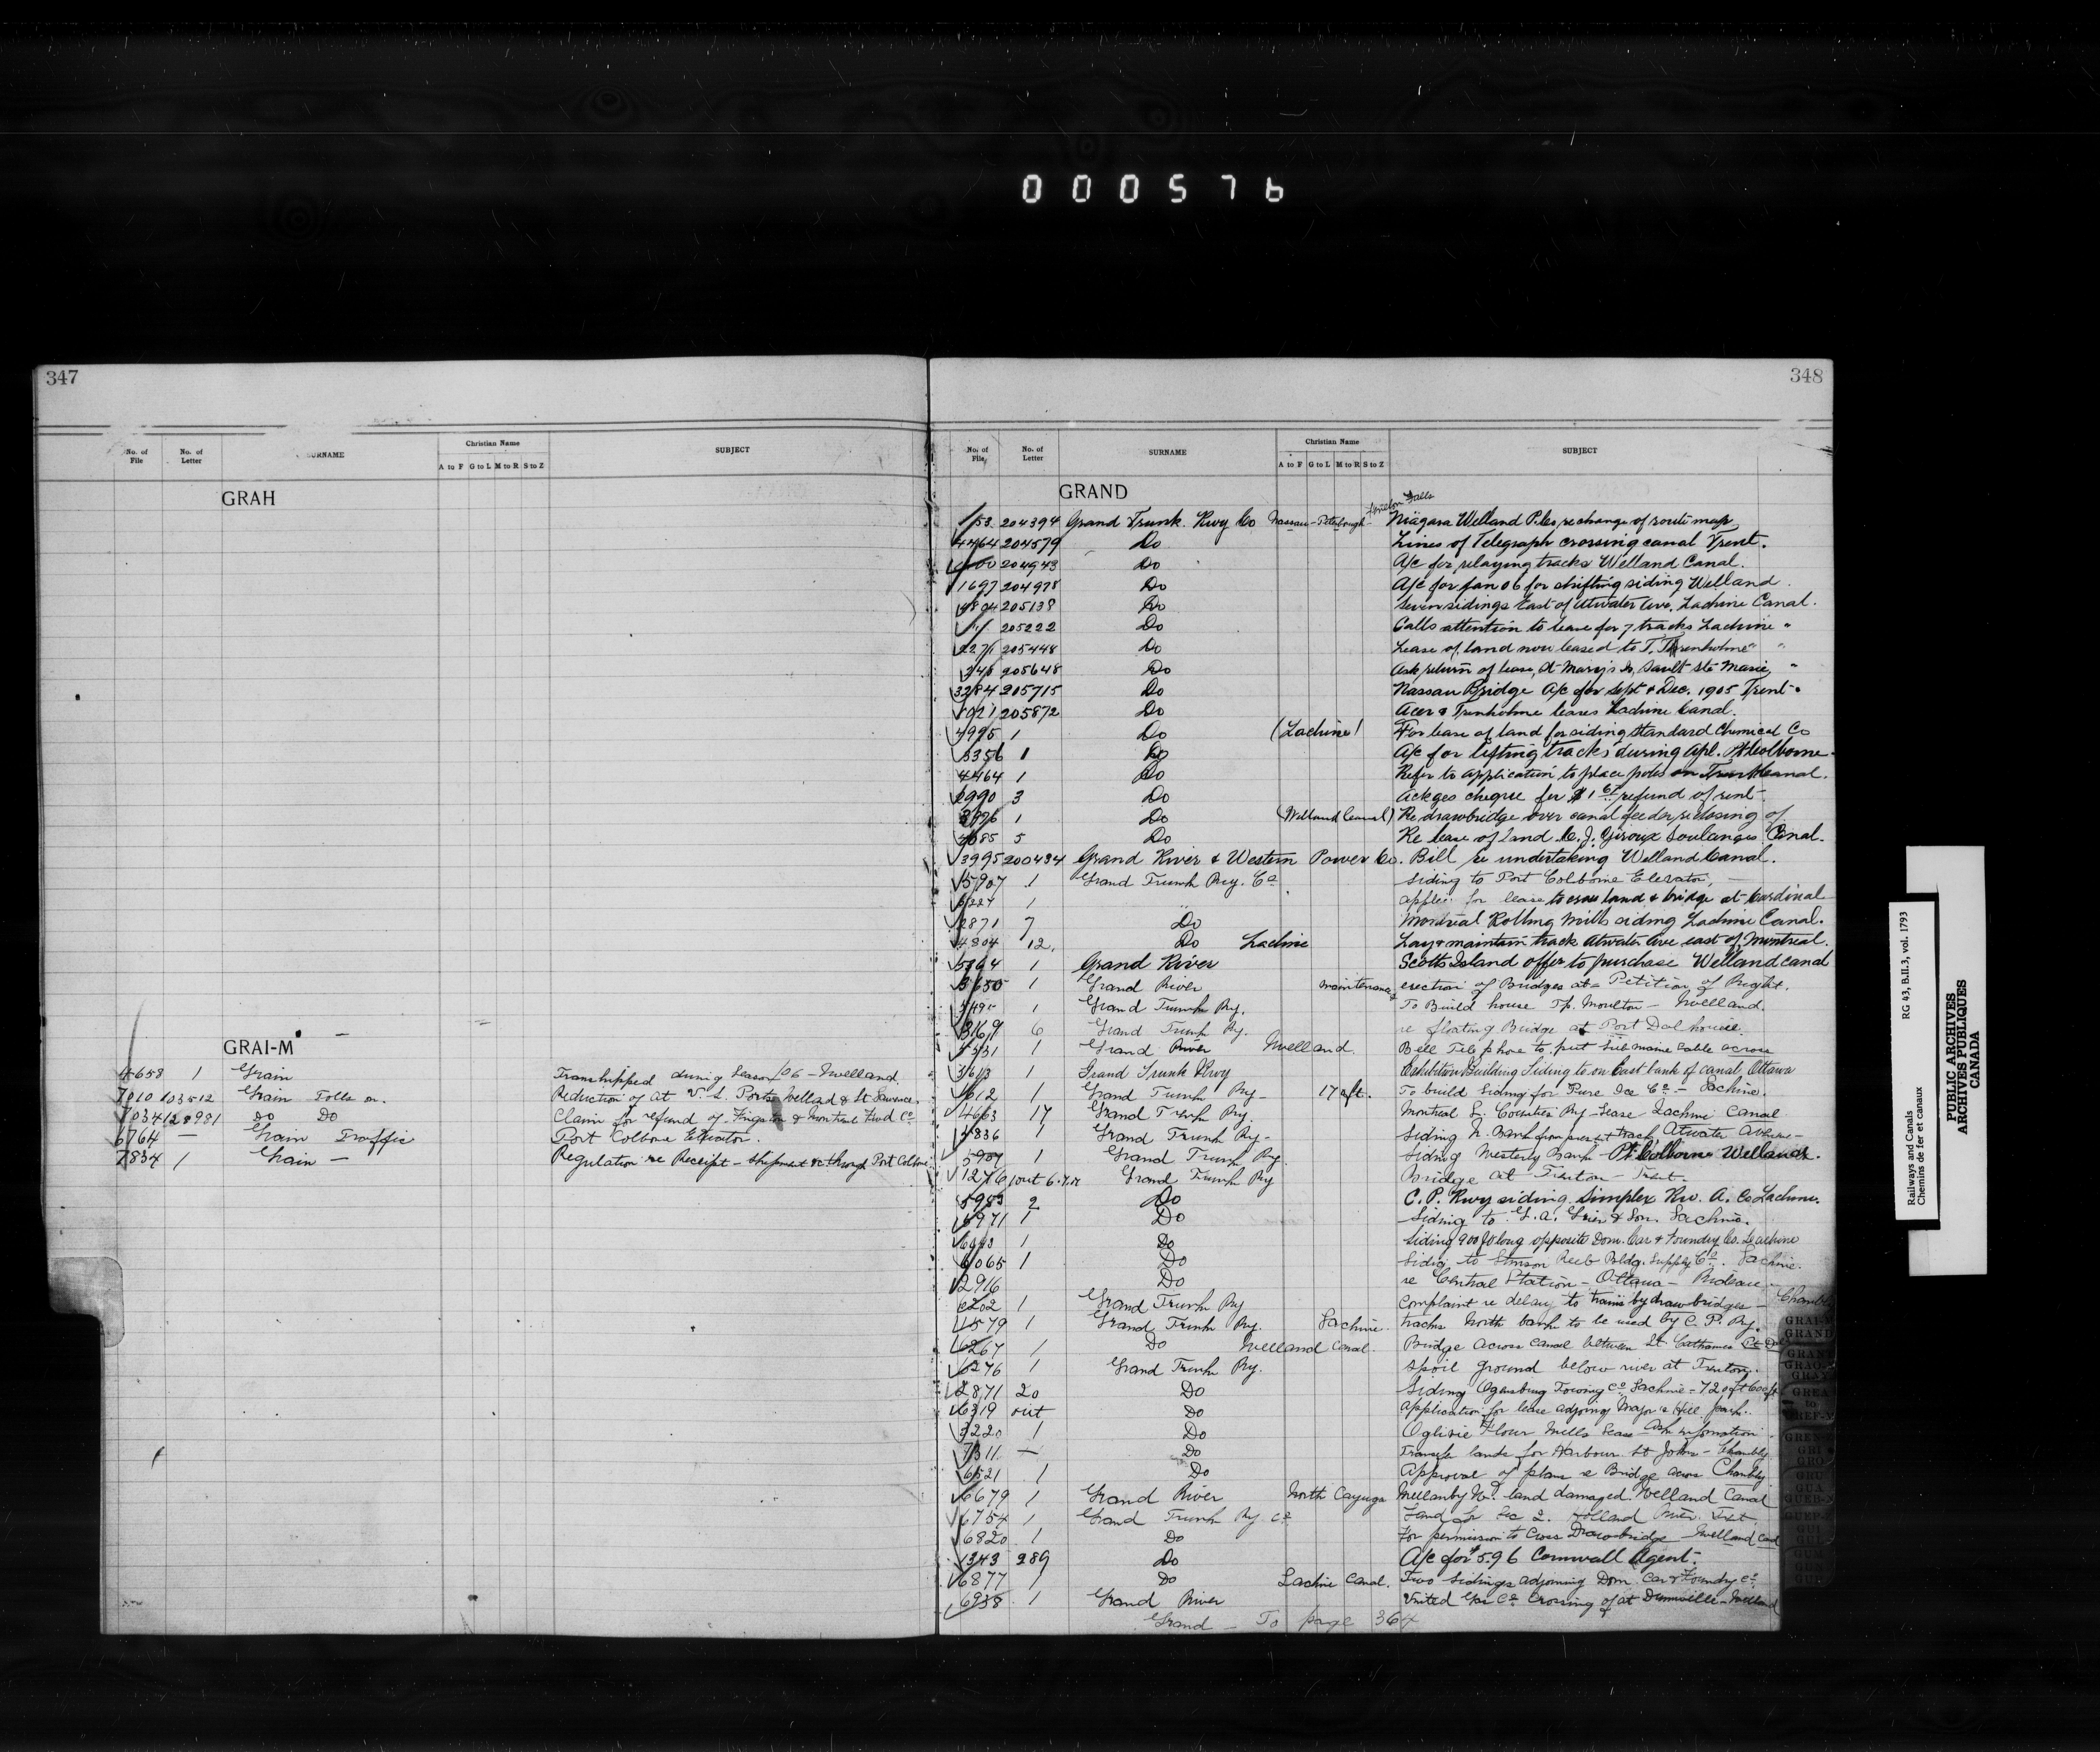 000576
347
No. of File No. of Letter SURNAME Christian Name A to F G to L M to R S to Z SUBJECT
GRAH
GRAI-M
4658 1 Grain Transhipped during Season /06 - Welland.
7010 103512 Grain Tolls on. Reduction of at Ports Welland & St Lawrence.
7034 128981 do Do Claim for refund of Kingston & Montreal Fwd Co
6764 — Grain Traffic Port Colborne Elevator.
7834 1 Grain — Regulation re Receipt - shipment &c through Port Colborne
348
No. of File No. of Letter SURNAME Christian Name A to F G to L M to R S to Z SUBJECT
GRAND
Falls
153 204394 Grand Trunk Rwy Co Nassau - Peterborough - Niagara Welland P. Co re change of route map
4464 204579 Do Lines of Telegraph crossing canal Trent.
204943 Do A/c for relaying tracks Welland Canal.
1697 204978 Do A/c for Jan 06 for shifting siding Welland.
4804 205138 Do Seven sidings East of Atwater Ave. Lachine Canal.
205222 Do Calls attention to lease for 7 tracks Lachine "
2271 205448 Do Lease of land now leased to T. Trenholme " "
205648 Do Ask return of lease, St Mary's Is, Sault Ste Marie "
3284 205715 Do Nassau Bridge A/c for Sept & Dec. 1905 Trent.
1021 205872 Do Acer & Trenholme leases Lachine Canal.
4995 1 Do (Lachine) For lease of land for siding Standard Chemical Co
5356 1 Do A/c for lifting tracks during Apl. Pt Colborne
4464 1 Do Refer to application to place poles on Trent Canal.
2990 3 Do Ackges cheque for $1 refund of rent
1 Do (Welland Canal) Re drawbridge over canal feeder re closing of
4085 5 Do Re lease of land C. J. Giroux Soulanges Canal.
3995 200434 Grand River & Western Power Co. Bill re undertaking Welland Canal.
5907 1 Grand Trunk Rwy. Co Siding to Port Colborne Elevator,
5227 1 applic. for lease to cross land & bridge at Cardinal
2871 7 Do Montreal Rolling Mills siding Lachine Canal.
4804 12. Do Lachine Lay & maintain track Atwater Ave east of, Montreal.
1 Grand River Scotts Island offer to purchase Welland canal
5650 1 Grand River maintenance & erection of Bridges at - Petition of Right.
1 Grand Trunk Ry. To Build house Tp. Moulton - Welland.
3169 6 Grand Trunk Ry. re floating Bridge at Port Dalhousie.
4531 1 Grand River Welland Bell Telephone to put submarine cable across
1 Grand Trunk Rwy Exhibition Building Siding to on East bank of canal, Ottawa
1612 1 Grand Trunk Ry - 17 aft. To build Siding for Pure Ice Co - Lachine.
4663 17 Grand Trunk Ry Montreal S. Counties Ry - Lease - Lachine Canal
4836 1 Grand Trunk Ry - Siding N. Bank from present track Atwater Avenue -
5907 1 Grand Trunk Ry. Siding Westerly Bank Pt Colborne Welland.
1276 1 out Grand Trunk Ry Bridge at Trenton - Trent.
5953 2 Do C. P. Rwy siding Simplex Rw. A. Co Lachine.
5971 1 Do Siding to G. A. Grier & Son. Lachine.
1 Do Siding 900 ft long opposite Dom. Car & Foundry Co. Lachine
6065 1 Do Siding to Stinson Reeb Bldg. Supply Co. Lachine.
2916 Do re Central Station - Ottawa - Rideau
6202 1 Grand Trunk Ry Complaint re delay to trains by drawbridges - Chambly
1579 1 Grand Trunk Ry. Lachine. tracks North bank to be used by C. P. Ry.
6267 1 Do Welland Canal. Bridge across canal between St. Catharines
6276 1 Grand Trunk Ry. spoil ground below river at Trenton.
2871 20 Do Siding Ogensburg Towing Co Lachine - 720 ft
6319 out Do Application for lease adjoing Major's Hill park.
3220 1 Do Ogilvie Flour Mills Lease ask information
7311 — Do Transfer lands for Harbour St Johns - Chambly
6521 1 Do Approval of plans re Bridge across Chambly
6679 1 Grand River North Cayuga Mellanby Wm land damaged. Welland Canal
6754 1 Grand Trunk Ry Co Land for Sec 2. Holland River. Trent
6820 1 Do For permission to Cross Drawbridge Welland Canal
1343 289 Do A/c for $5.96 Cornwall Agent.
6877 1 Do Lachine Canal. Two sidings adjoining Dom. Car & Foundry Co.
6938 1 Grand River United Gas Co Crossing of at Dunnville - Welland
Grand - To page 364
GRAI-M
GRAND
GREA
to
GREN
GRI
GRO
GRU
GUA
GUI
Railways and Canals
Chemins de fer et canaux
RG 43, B.II.3, vol. 1793
PUBLIC ARCHIVES
ARCHIVES PUBLIQUES
CANADA